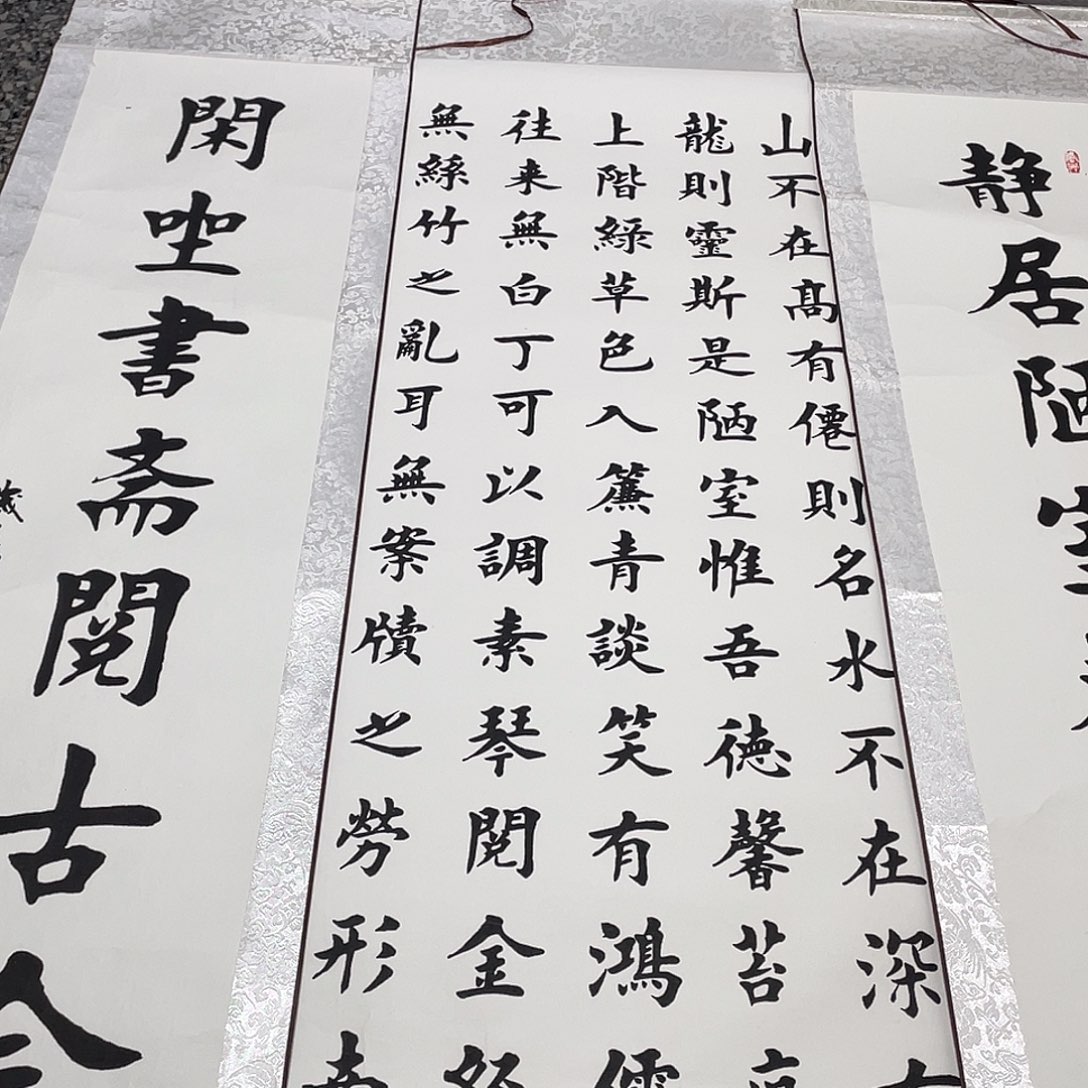 静居陋室
山不在髙有僊則名水不在深有
龍則靈斯是陋室惟吾德馨苔
上階緑草色入簾青談笑有鴻儒
往来無白丁可以調素琴閲金
無絲竹之亂耳無案牘之勞形南
閑坐書斋閲古今